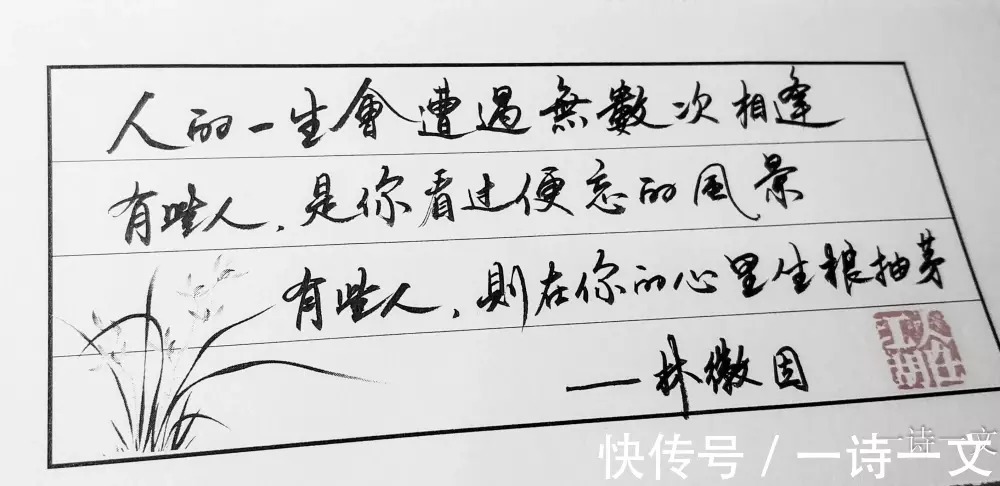 人的一生會遭遇無數次相逢
有些人，是你看过便忘的風景
有些人，則在你的心里生根抽芽
——林徽因
一诗一文
快传号 / 一诗一文